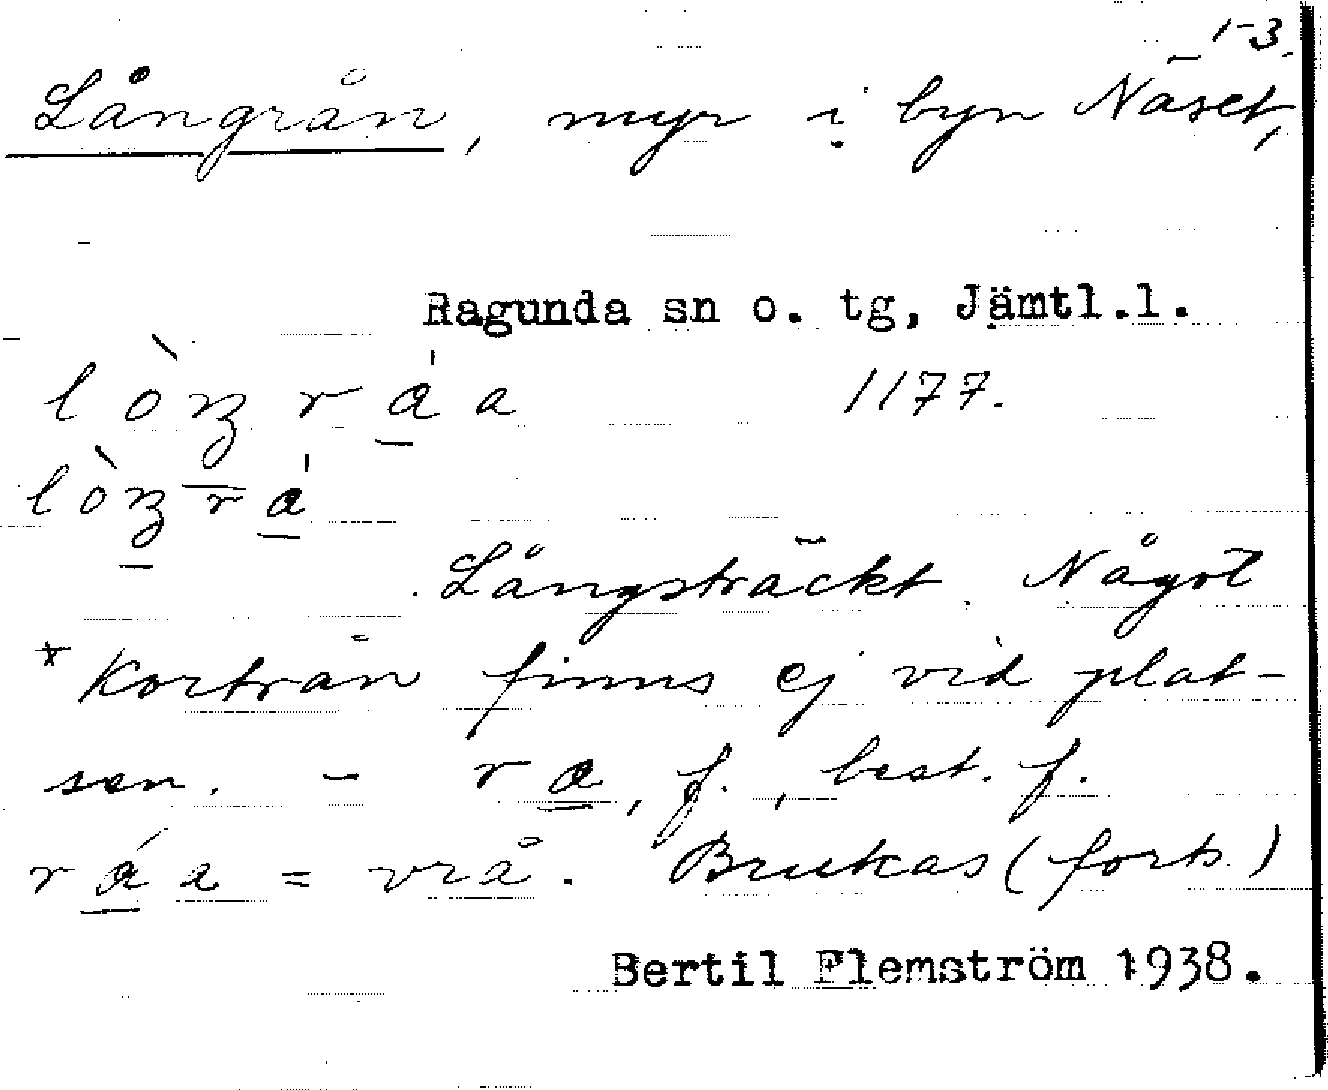 1-3.
Långrån, myr i byn Näset,
Ragunda sn o. tg, Jämtl.l.
lòŋráa 1177.
lòŋrá
Långsträckt. Något
*Kortrån finns ej vid plat-
sen. - ra, f., best. f.
ráa = vrå. Brukas (forts.)
Bertil Flemström 1938.